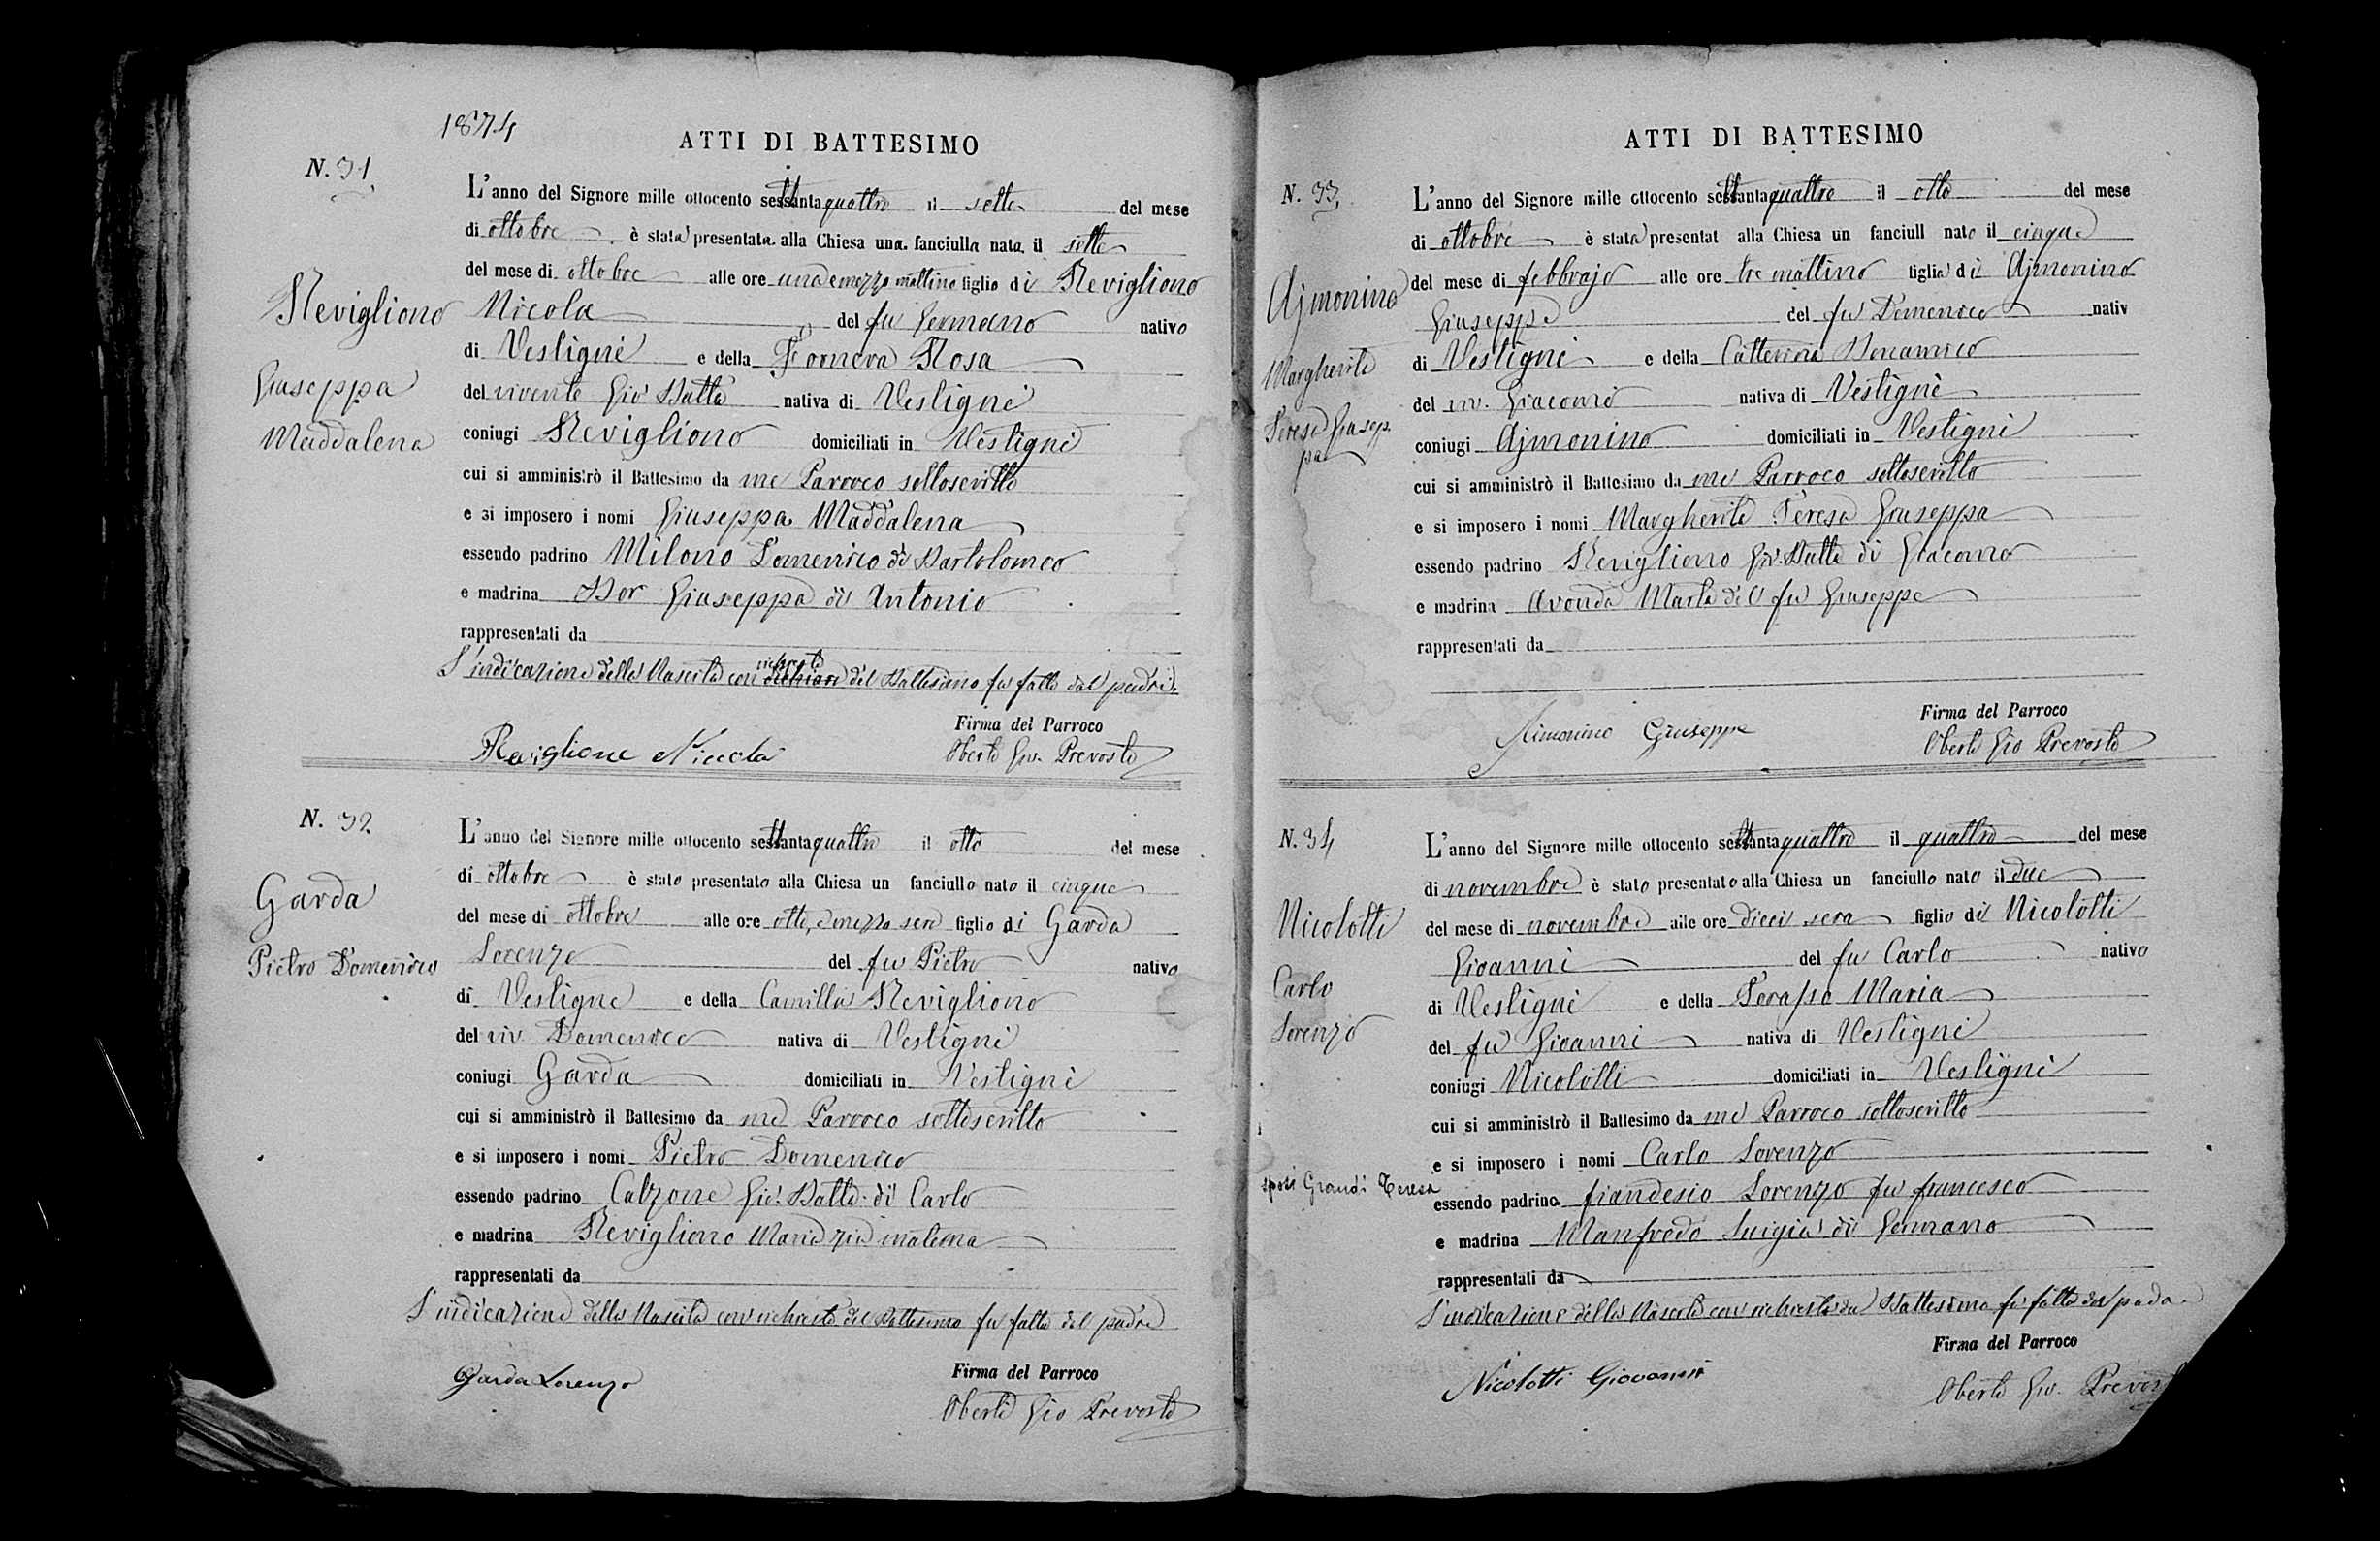 1874
ATTI DI BATTESIMO
N. 31
L'anno del Signore mille ottocento settantaquattro il sette del mese
di ottobre è stata presentata alla Chiesa una fanciulla nata il sette
del mese di ottobre alle ore una e mezzo mattino figlio di Revigliono
Nicola del fu Germano nativo
di Vestignè e della Fornera Rosa
del vivente Gio Batta nativa di Vestignè
coniugi Revigliono domiciliati in Vestignè
cui si amministrò il Battesimo da me Parroco sottoscritto
e si imposero i nomi Giuseppa Maddalena
essendo padrino Milono Domenico di Bartolomeo
e madrina Bor Giuseppa di Antonio
rappresentati da
L'indicazione della Nascita con richiesta del Battesimo fu fatta dal padre
Revigliono
Giuseppa
Maddalena
Firma del Parroco
Reviglione Nicola Oberto Gio. Prevosto
N. 32
L'anno del Signore mille ottocento settantaquattro il otto del mese
di ottobre è stato presentato alla Chiesa un fanciullo nato il cinque
del mese di ottobre alle ore otto, e mezzo sera figlio di Garda
Lorenzo del fu Pietro nativo
di Vestigne e della Camilla Revigliono
del viv Domenico nativa di Vestignè
coniugi Garda domiciliati in Vestignè
cui si amministrò il Battesimo da me Parroco sottoscritto
e si imposero i nomi Pietro Domenico
essendo padrino Calzone Gio. Batta di Carlo
e madrina Revigliono Maria zia materna
rappresentati da
L'indicazione della Nascita con richiesta del Battesimo fu fatta dal padre
Garda
Pietro Domenico
Firma del Parroco
Garda Lorenzo Oberto Gio Prevosto
ATTI DI BATTESIMO
N. 33
L'anno del Signore mille ottocento settantaquattro il otto del mese
di ottobre è stata presentat alla Chiesa un fanciull nato il cinque
del mese di febbrajo alle ore tre mattino figlia di Ajmonino
Giuseppe del fu Domenico nativ
di Vestignè e della Catterina Bonamico
del viv. Giacomo nativa di Vestignè
coniugi Ajmonino domiciliati in Vestignè
cui si amministrò il Battesimo da me Parroco sottoscritto
e si imposero i nomi Margherita Teresa Giuseppa
essendo padrino Revigliono Gio. Batta di Giacomo
e madrina Avondo Marta del fu Giuseppe
rappresentati da
Ajmonino
Margherita
Teresa Giusep
pa
Firma del Parroco
Aimonino Giuseppe Oberto Gio Prevosto
N. 34
L'anno del Signore mille ottocento settantaquattro il quattro del mese
di novembre è stato presentato alla Chiesa un fanciullo nato il due
del mese di novembre alle ore dieci sera figlio di Nicolotti
Gioanni del fu Carlo nativo
di Vestignè e della Perasso Maria
del fu Gioanni nativa di Vestignè
coniugi Nicolotti domiciliati in Vestignè
cui si amministrò il Battesimo da me Parroco sottoscritto
e si imposero i nomi Carlo Lorenzo
essendo padrino Fiandesio Lorenzo fu Francesco
e madrina Manfredo Luigia di Germano
rappresentati da
L'indicazione della Nascita con richiesta del Battesimo fu fatta dal padre
Nicolotti
Carlo
Lorenzo
sposi Grandi Teresa
Firma del Parroco
Nicolotti Giovanni Oberto Gio. Prevosto